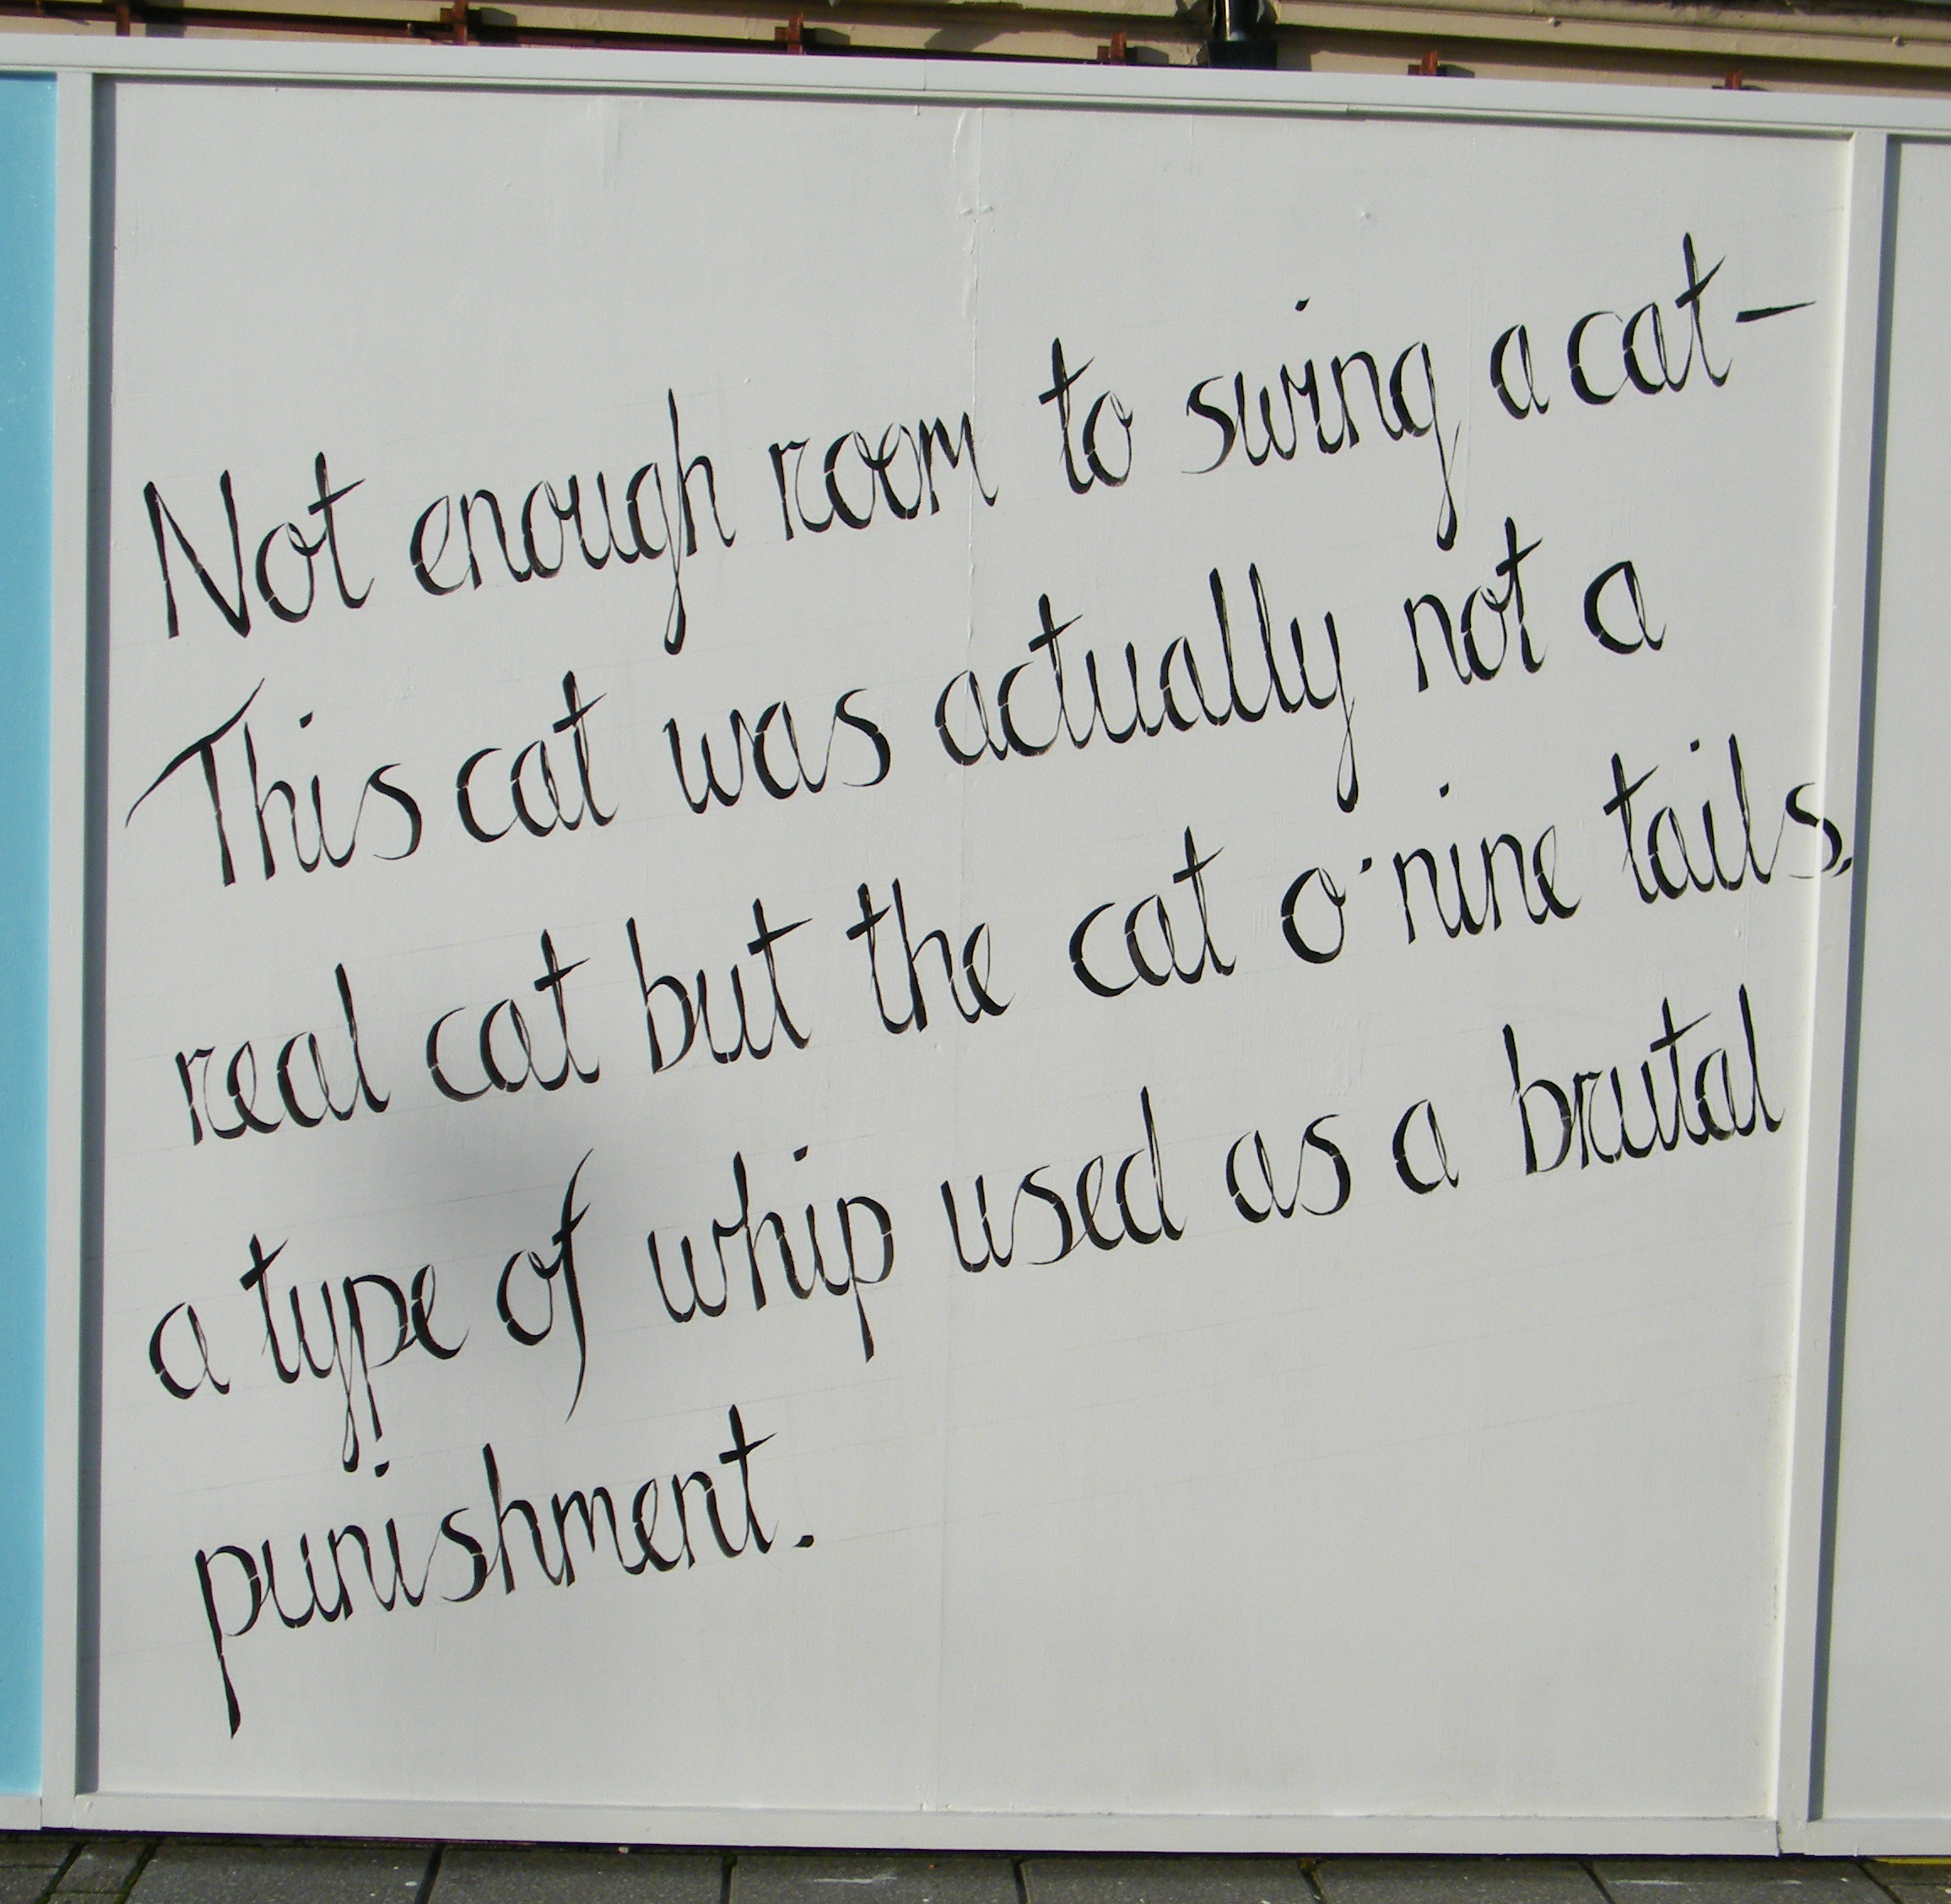 Not enough room to swing a cat-
This cat was actually not a
real cat but the cat o'nine tails,
a type of whip used as a brutal
punishment.